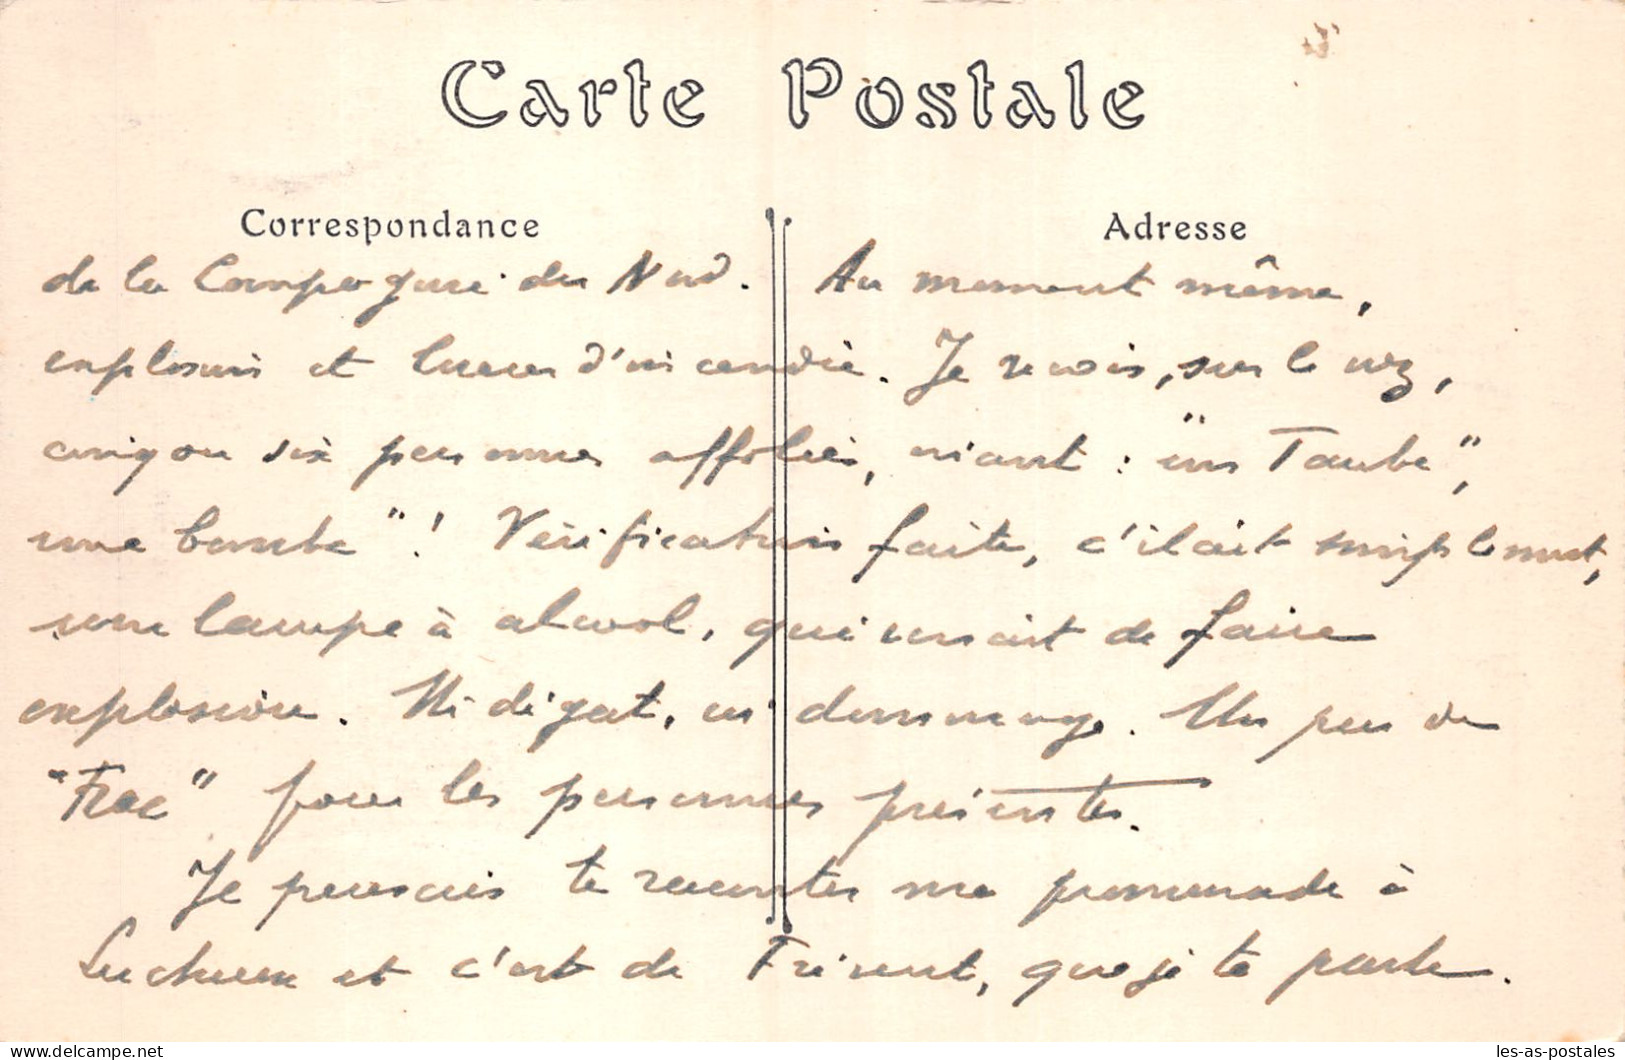 Carte Postale
Correspondance
Adresse
de la Compagnie du Nord. Au moment même,
explosion et lueur d'incendie. Je reçois, sur le nez,
cinq ou six personnes affolées, criant : "un Taube",
une bombe" ! Vérification faite, c'était simplement,
une lampe à alcool, qui venait de faire
explosion. Ni dégat, ni dommage. Un peu de
"Frac" pour les personnes présentes.
Je pensais te raconter ma promenade à
Lucheux et c'est de Frévent, que je te parle.
les-as-postales